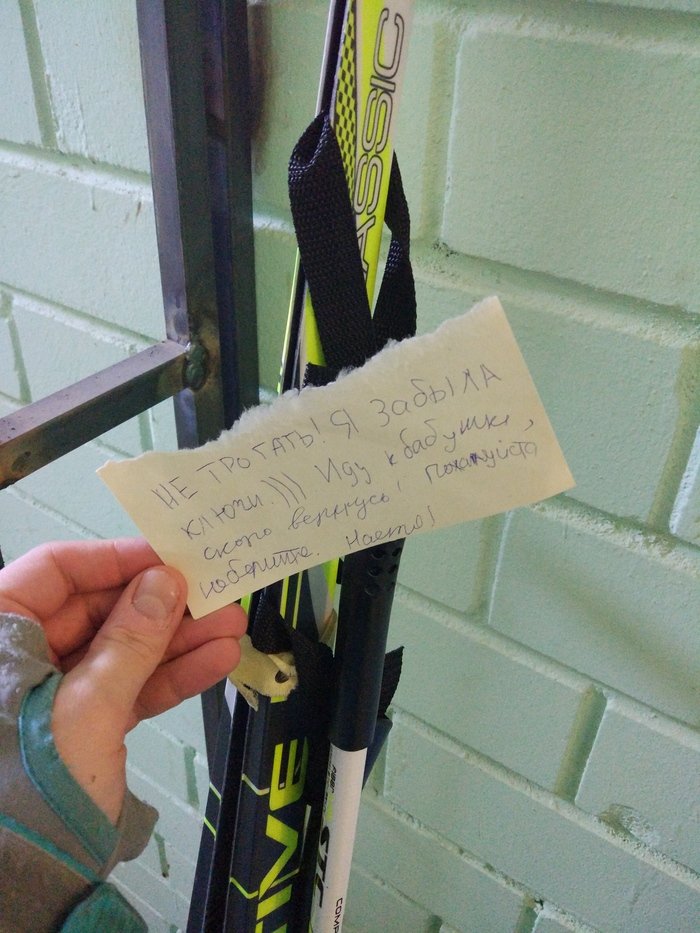 ASSIC
НЕ ТРОГАТЬ! Я ЗАБЫЛА
КЛЮЧИ.))) Иду к бабушке,
скоро вернусь, пожалуйста
Настя!
TIVE
STC
COMP